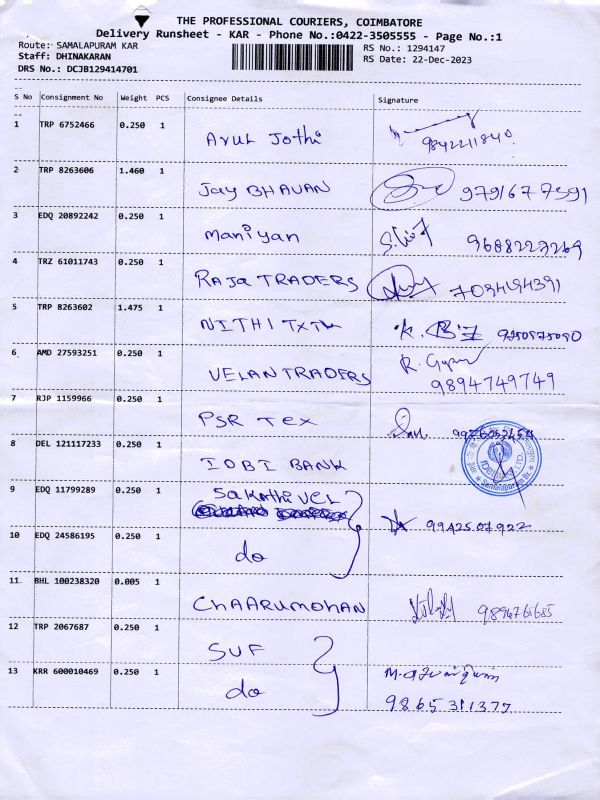 THE PROFESSIONAL COURIERS, COIMBATORE
Delivery Runsheet - KAR - Phone No.:0422-3505555 - Page No.:1
Route: SAMALAPURAM KAR RS No.: 1294147
Staff: DHINAKARAN RS Date: 22-Dec-2023
DRS No.: DCJB129414701
S No Consignment No Weight PCS Consignee Details Signature
1 TRP 6752466 0.250 1 Arul Jothi 9842211840
2 TRP 8263606 1.460 1 Jay BHAVAN 9791677591
3 EDQ 20892242 0.250 1 Maniyan 9688227269
4 TRZ 61011743 0.250 1 RAJA TRADERS
5 TRP 8263602 1.475 1 NITHI TXTL
6 AMD 27593251 0.250 1 VELAN TRADERS 9894749749
7 RJP 1159966 0.250 1 PSR Tex
8 DEL 121117233 0.250 1 IDBI BANK
9 EDQ 11799289 0.250 1 Sakthi VEL
9942507922
10 EDQ 24586195 0.250 1 do
11 BHL 100238320 0.005 1 CHAARUMOHAN
12 TRP 2067687 0.250 1 SUF
13 KRR 600010469 0.250 1 do
9865311377